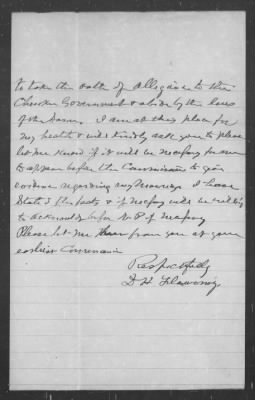 to take the oath of Allegiance to the
Cherokee Government & abide by the laws
of the Same. I am at this place for
my health & will kindly ask you to please
let me know if it will be necessary for me
to appear before the Commission to give
evidence regarding my Marriage. I have
Stated the facts & if necessary will be willing
to acknowledge before N. P. if necessary
Please let me hear from you at your
earliest Convenience
Respectfully
D. H.